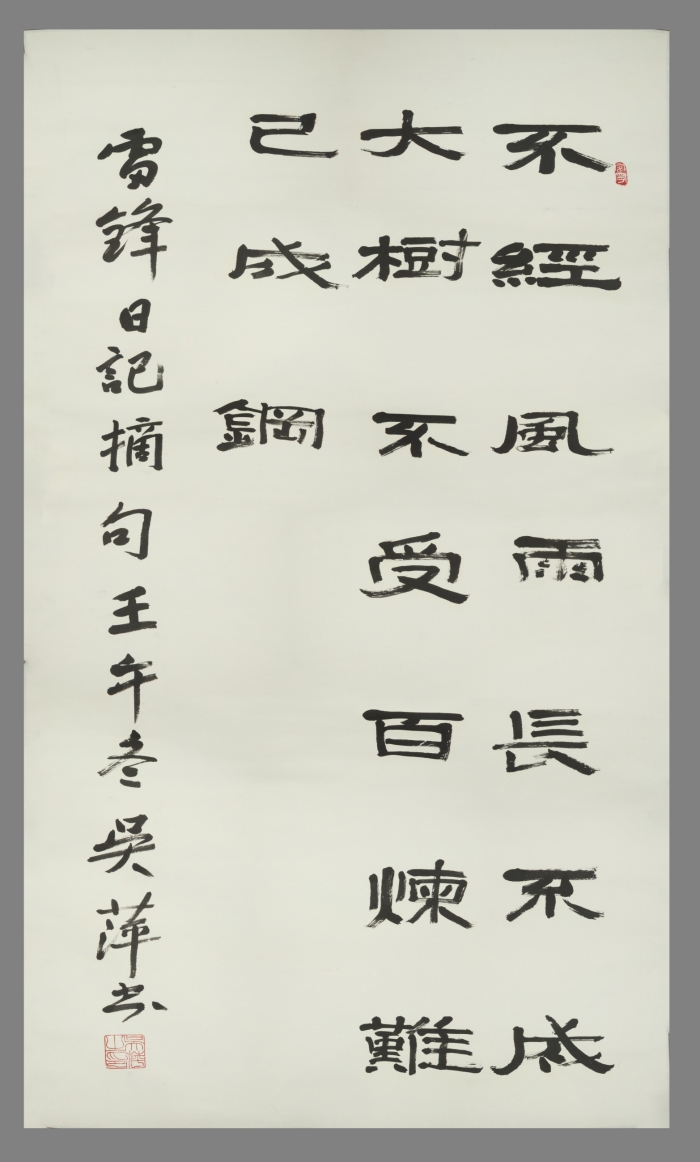 不經風雨長不成
大樹不受百煉難
已成鋼
雷鋒日記摘句壬午冬吳萍书